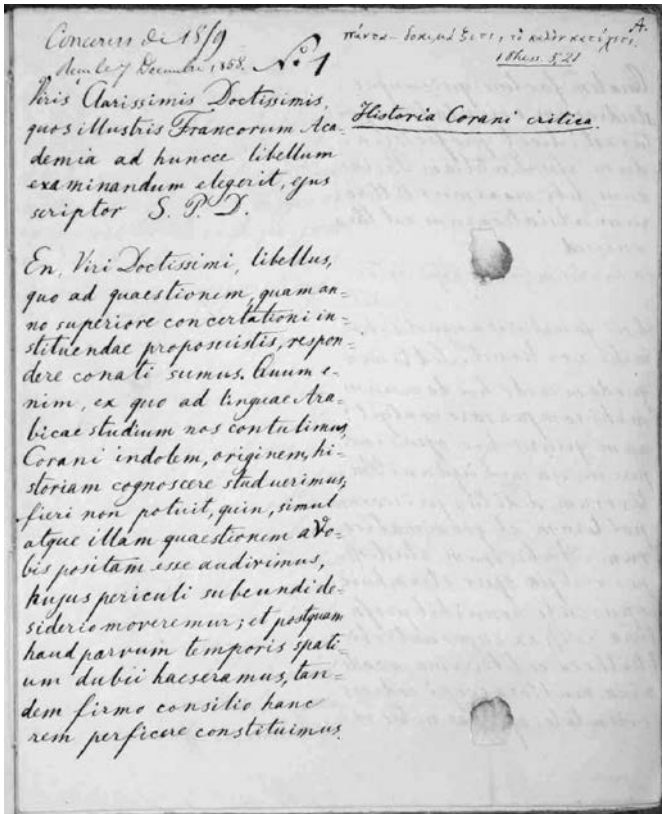 Concours de 1859
Reçu le 7 Décembre, 1858. No 1
Viris Clarissimis Doctissimis,
quos illustris Francorum Aca-
demia ad huncce libellum
examinandum elegerit, ejus
scriptor S. P. D.
En, Viri Doctissimi, libellus,
quo ad quaestionem, quam an-
no superiore concertationi in-
stituendae proposuistis, respon-
dere conati sumus. Quum e-
nim, ex quo ad linguae Ara-
bicae studium nos contulimus,
Corani indolem, originem, hi-
storiam cognoscere studuerimus,
fieri non potuit, quin, simul
atque illam quaestionem a Vo-
bis positam esse audivimus,
hujus periculi subeundi de-
siderio moveremur; et postquam
haud parvum temporis spati-
um dubii haeseramus, tan-
dem firmo consilio hanc
rem perficere constituimus.
A.
πάντα δοκιμάζετε, τὸ καλὸν κατέχετε.
1 Thess. 5,21
Historia Corani critica